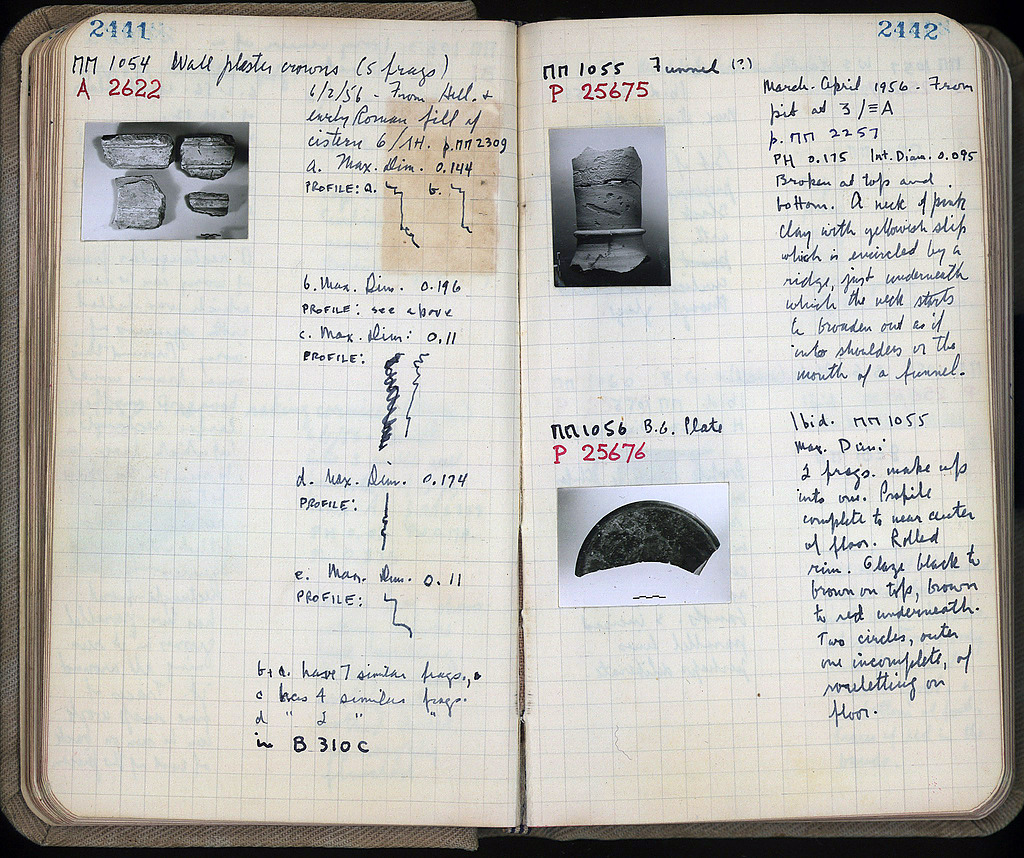 2441
ΠΠ 1054 Wall plaster crowns (5 frags)
A 2622
6/2/56 - From Hell. +
early Roman fill of
cistern 6/ΛH. p.ΠΠ 2309
a. Max. Dim. 0.144
PROFILE: a. b.
b. Max. Dim. 0.196
PROFILE: see above
c. Max. Dim: 0.11
PROFILE:
d. Max. Dim. 0.174
PROFILE:
e. Max. Dim. 0.11
PROFILE:
b+a. have 7 similar frags.,
c has 4 similar frags.
d " 2 " "
in B 310C
2442
ΠΠ 1055 Funnel (?)
P 25675
March-April 1956 - From
pit at 3/ΞA
p.ΠΠ 2257
PH 0.175 Int. Diam. 0.095
Broken at top and
bottom. A neck of pink
clay with yellowish slip
which is encircled by a
ridge, just underneath
which the neck starts
to broaden out as if
into shoulders or the
mouth of a funnel.
ΠΠ 1056 B.G. Plate
P 25676
Ibid. ΠΠ 1055
Max. Dim:
2 frags. make up
into one. Profile
complete to near center
of floor. Rolled
rim. Glaze black to
brown on top, brown
to red underneath.
Two circles, outer
one incomplete, of
rouletting on
floor.